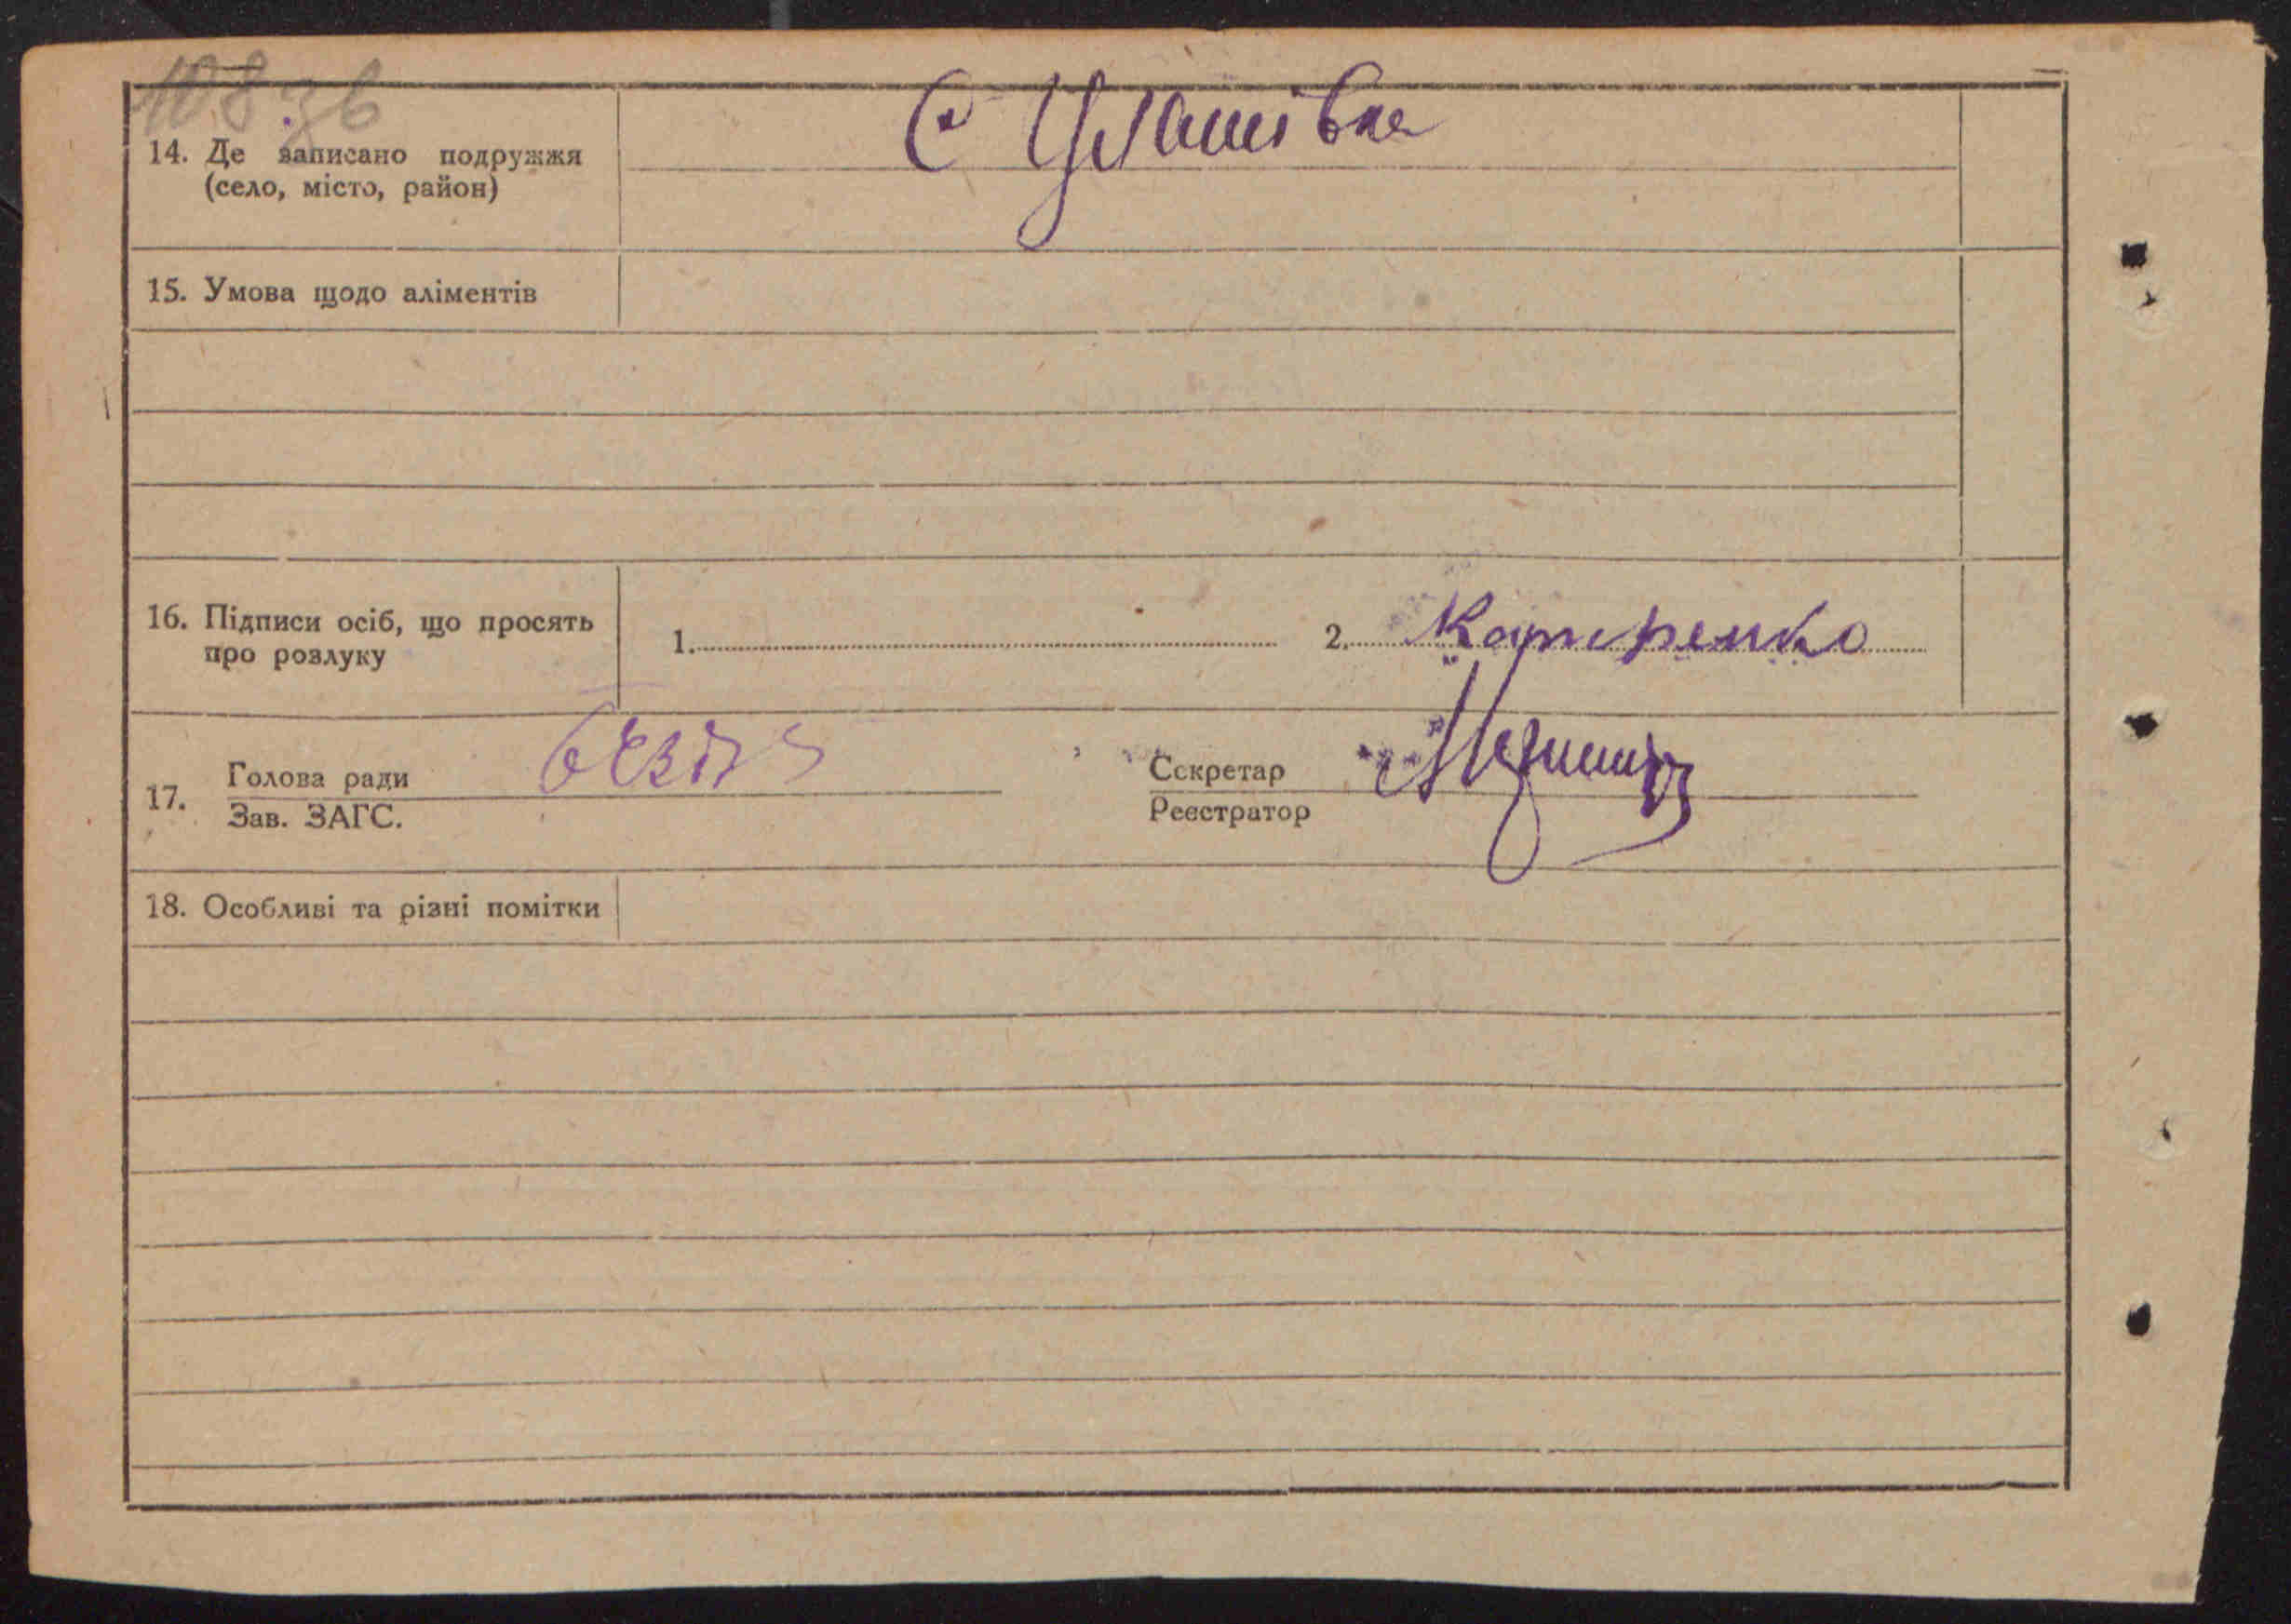 108 зв
С Уланівка
14. Де записано подружжя
(село, місто, район)
15. Умова щодо аліментів
16. Підписи осіб, що просять
про розлуку
1. 2. Катеренко
17. Голова ради
Зав. ЗАГС.
Секретар
Реєстратор
18. Особливі та різні помітки